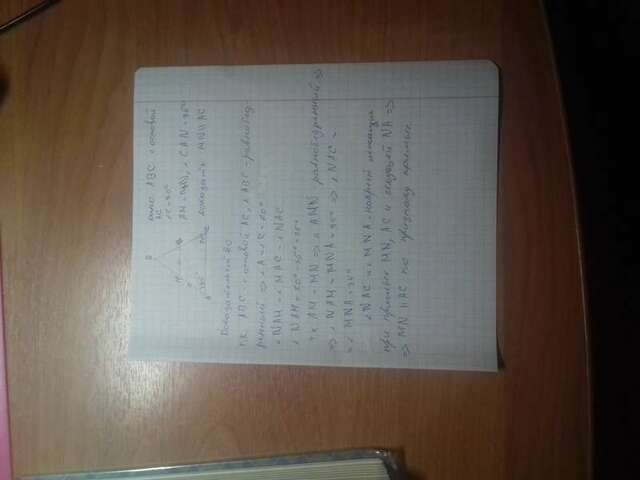 B
дано ABC с основой
AC
∠C = 70°
AM = MN, ∠CAN = 35°
доказать MN || AC
M N
A C
35°
Доказательство
т.к. ABC с основой AC, ΔABC - равнобед-
ренный ⇒ ∠A = ∠C = 70°
∠NAM = ∠MAC - ∠NAC
∠NAM = 70° - 35° = 35°
т.к AM = MN ⇒ Δ AMN равнобедренный ⇒
⇒ ∠NAM = MNA = 35° ⇒ ∠NAC =
= ∠MNA = 35°
∠NAC и ∠MNA - накрест лежащие
при прямых MN, AC и секущей NA ⇒
⇒ MN || AC по признаку прямых